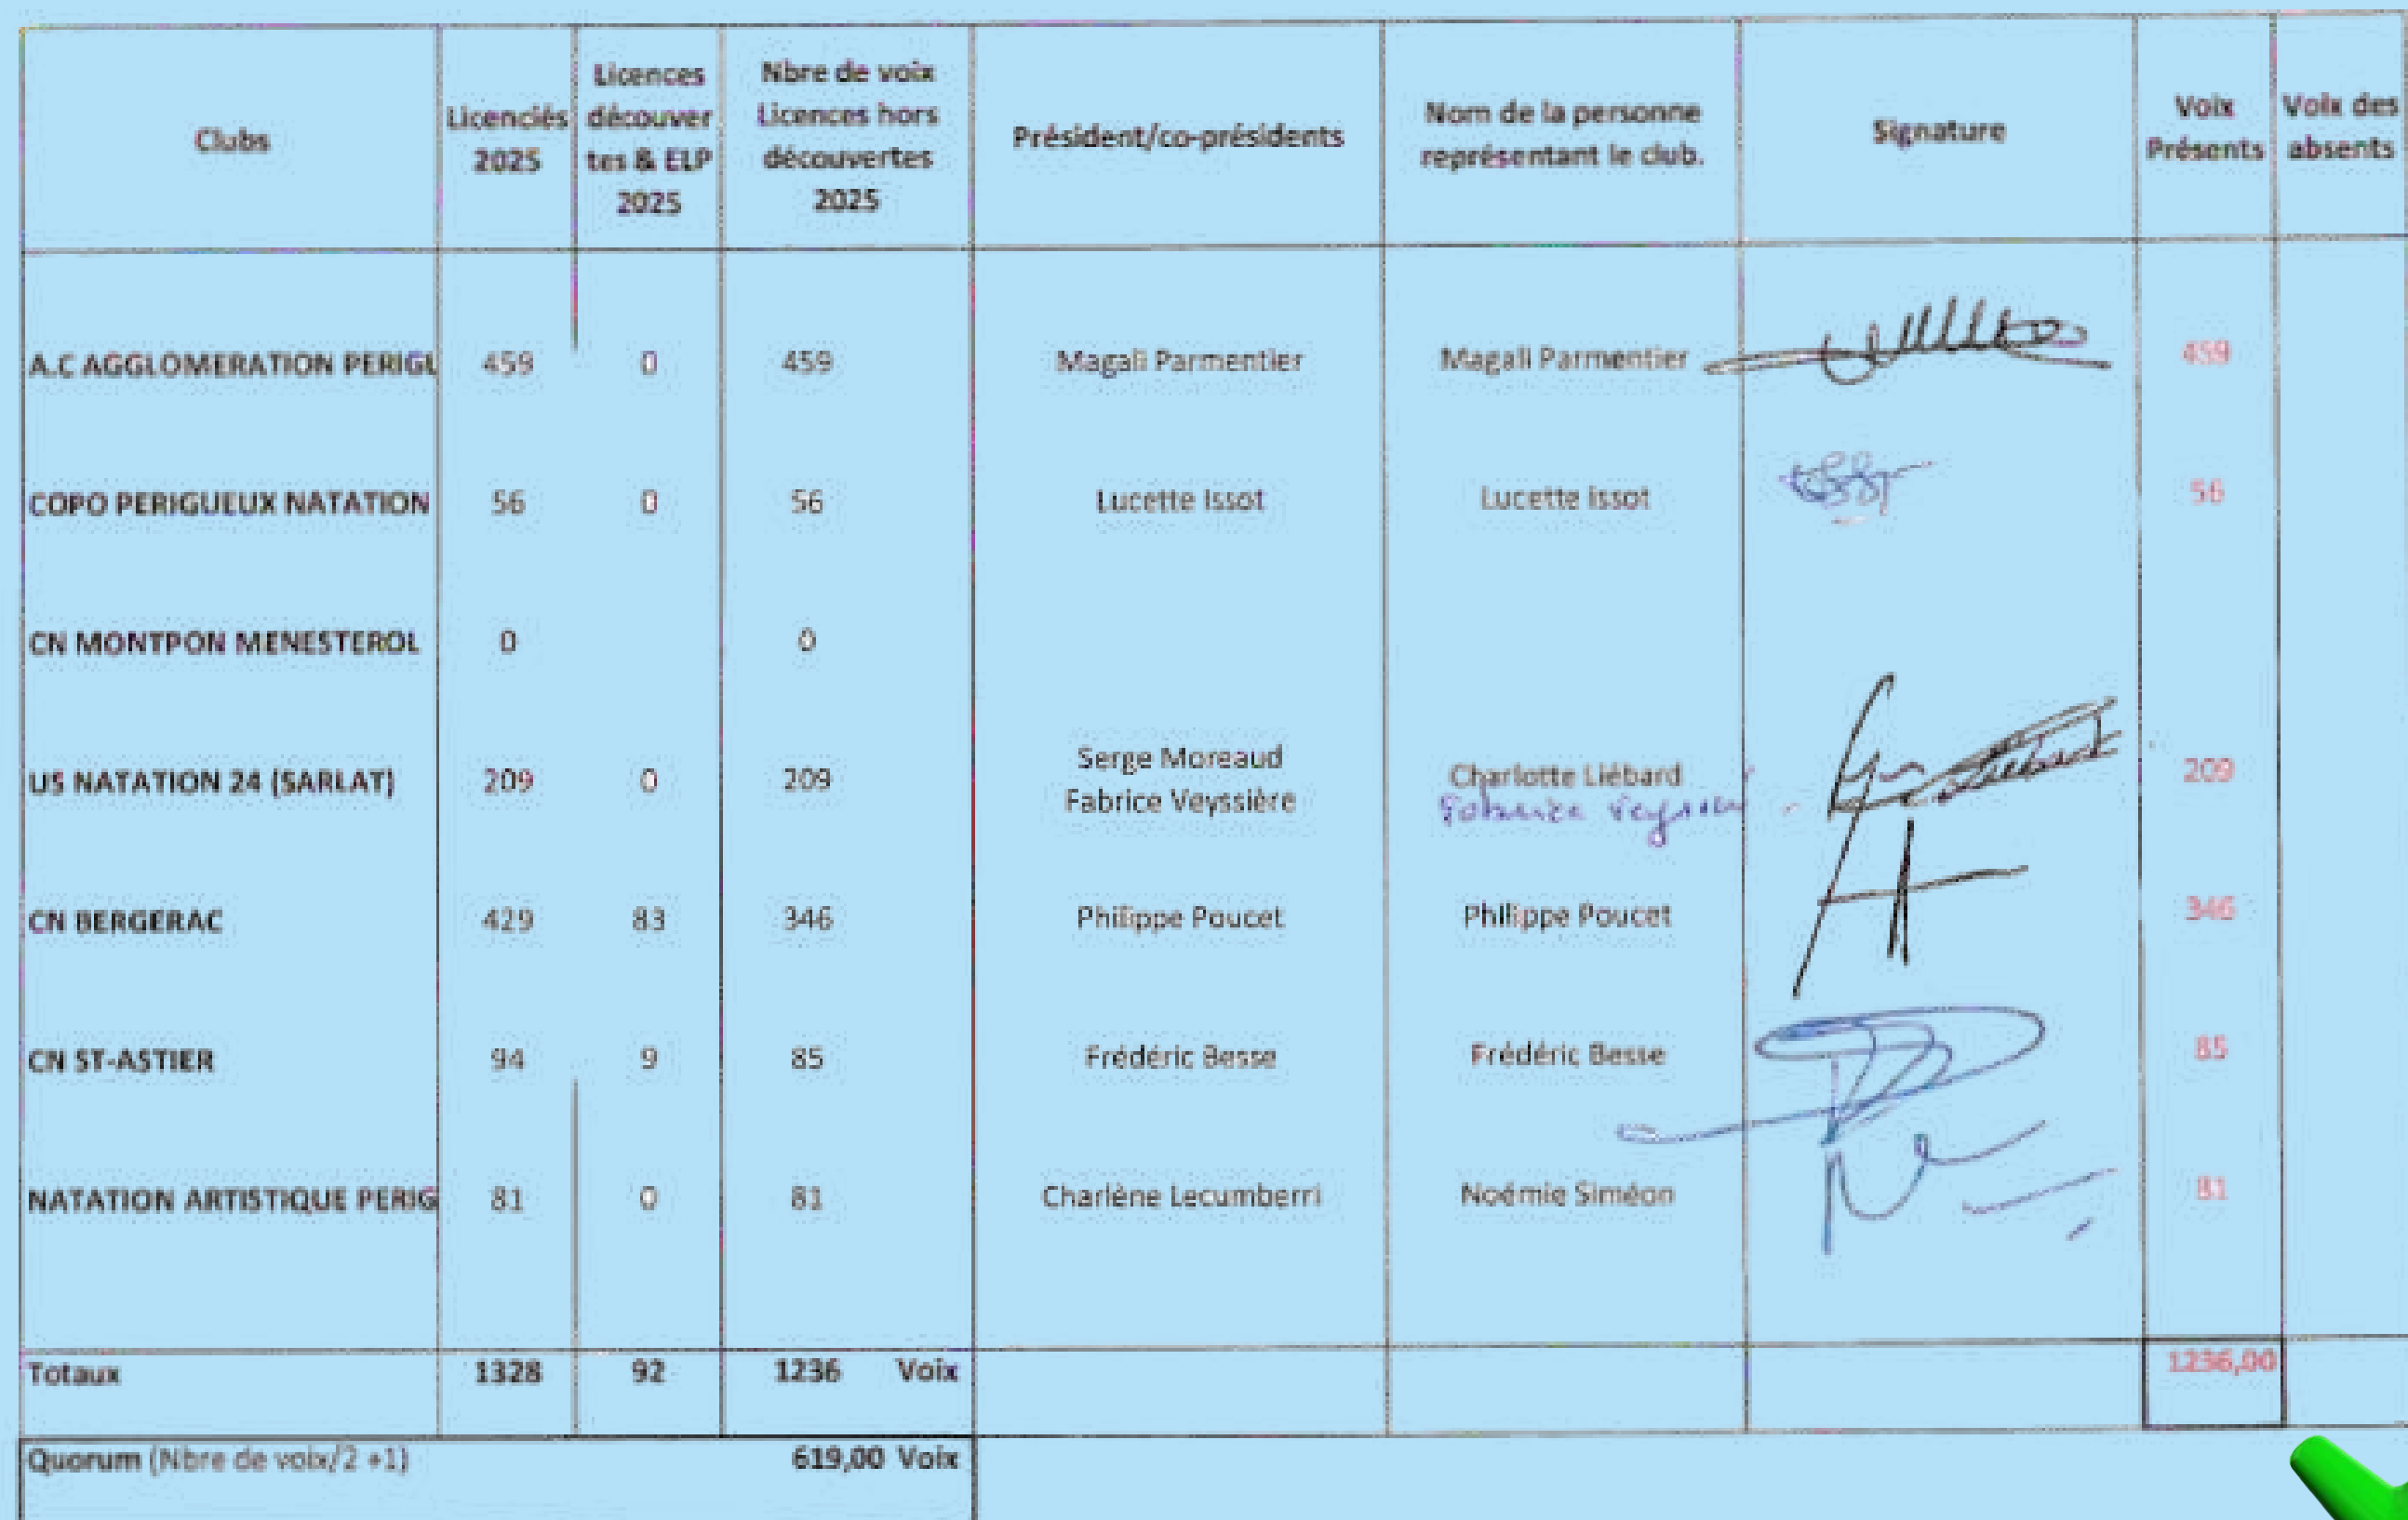 Clubs Licenciés 2025 Licences découver tes & ELP 2025 Nbre de voix Licences hors découvertes 2025 Président/co-présidents Nom de la personne représentant le club. Signature Voix Présents Voix des absents
A.C AGGLOMERATION PERIGU 459 0 459 Magali Parmentier Magali Parmentier 459
COPO PERIGUEUX NATATION 56 0 56 Lucette Issot Lucette Issot 56
CN MONTPON MENESTEROL 0 0
US NATATION 24 (SARLAT) 209 0 209 Serge Moreaud Fabrice Veyssière Charlotte Liébard 209
CN BERGERAC 429 83 346 Philippe Poucet Philippe Poucet 346
CN ST-ASTIER 94 9 85 Frédéric Besse Frédéric Besse 85
NATATION ARTISTIQUE PERIG 81 0 81 Charlène Lecumberri Noémie Siméon 81
Totaux 1328 92 1236 Voix 1236,00
Quorum (Nbre de voix/2 +1) 619,00 Voix